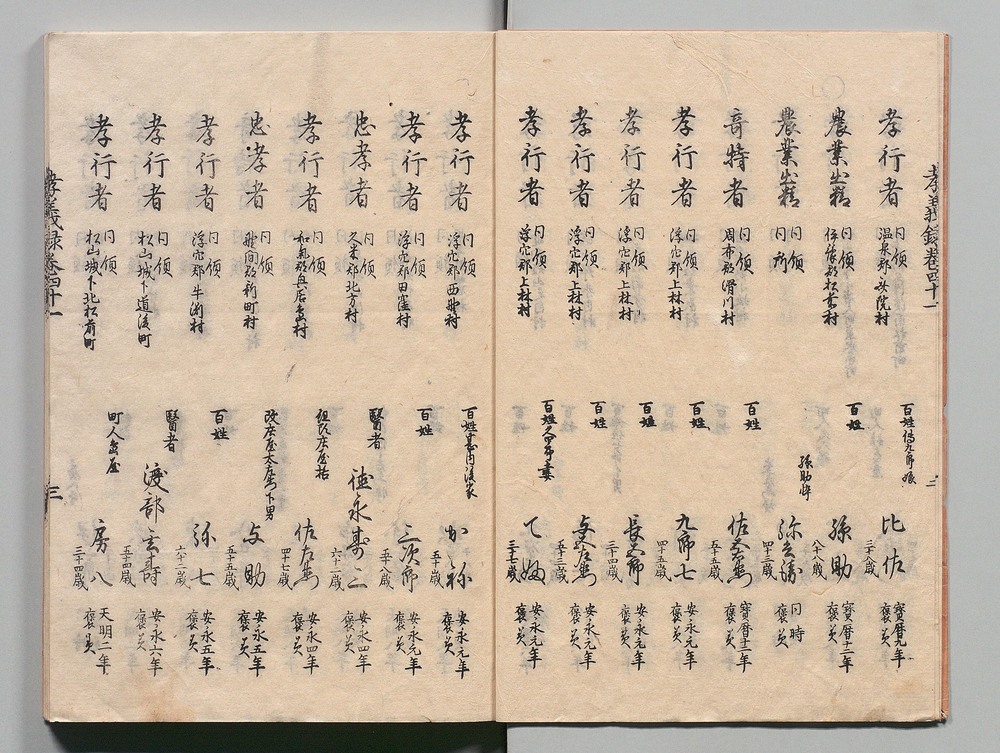 孝義録巻四十一
孝行者 同領 温泉郡安院村 百姓傳九郎娘 比佐 三十八歳 寶暦九年 褒美
農業出精 同領 伊豫郡松前村 百姓 孫助 八十八歳 寶暦十二年 褒美
農業出精 同領 同所 孫助悴 弥三勝 四十三歳 同時 褒美
奇特者 同領 周布郡滑川村 百姓 佐右衛門 五十五歳 寶暦十三年 褒美
孝行者 同領 浮穴郡上林村 百姓 九郎七 四十五歳 安永元年 褒美
孝行者 同領 浮穴郡上林村 百姓 長五郎 四十三歳 安永元年 褒美
孝行者 同領 浮穴郡上林村 百姓 与左衛門 五十三歳 安永元年 褒美
孝行者 同領 浮穴郡上林村 百姓 妻 三十七歳 安永元年 褒美
孝行者 同領 浮穴郡西野村 百姓 後家 かね 五十歳 安永元年 褒美
孝行者 同領 浮穴郡田窪村 百姓 三次郎 五十八歳 安永元年 褒美
忠孝者 同領 久米郡北方村 醫者 徳永寿三 六十三歳 安永四年 褒美
孝行者 同領 和氣郡興居島村 組頭庄屋格 佐左衛門 四十七歳 安永四年 褒美
忠孝者 同領 野間郡新町村 改庄屋太左衛門下男 与助 五十五歳 安永五年 褒美
孝行者 同領 浮穴郡牛渕村 百姓 弥七 六十二歳 安永五年 褒美
孝行者 同領 松山城下道後町 醫者 渡部玄壽 五十四歳 安永六年 褒美
孝行者 同領 松山城下北松前町 町人 房八 三十四歳 天明二年 褒美
孝義録巻四十一
三